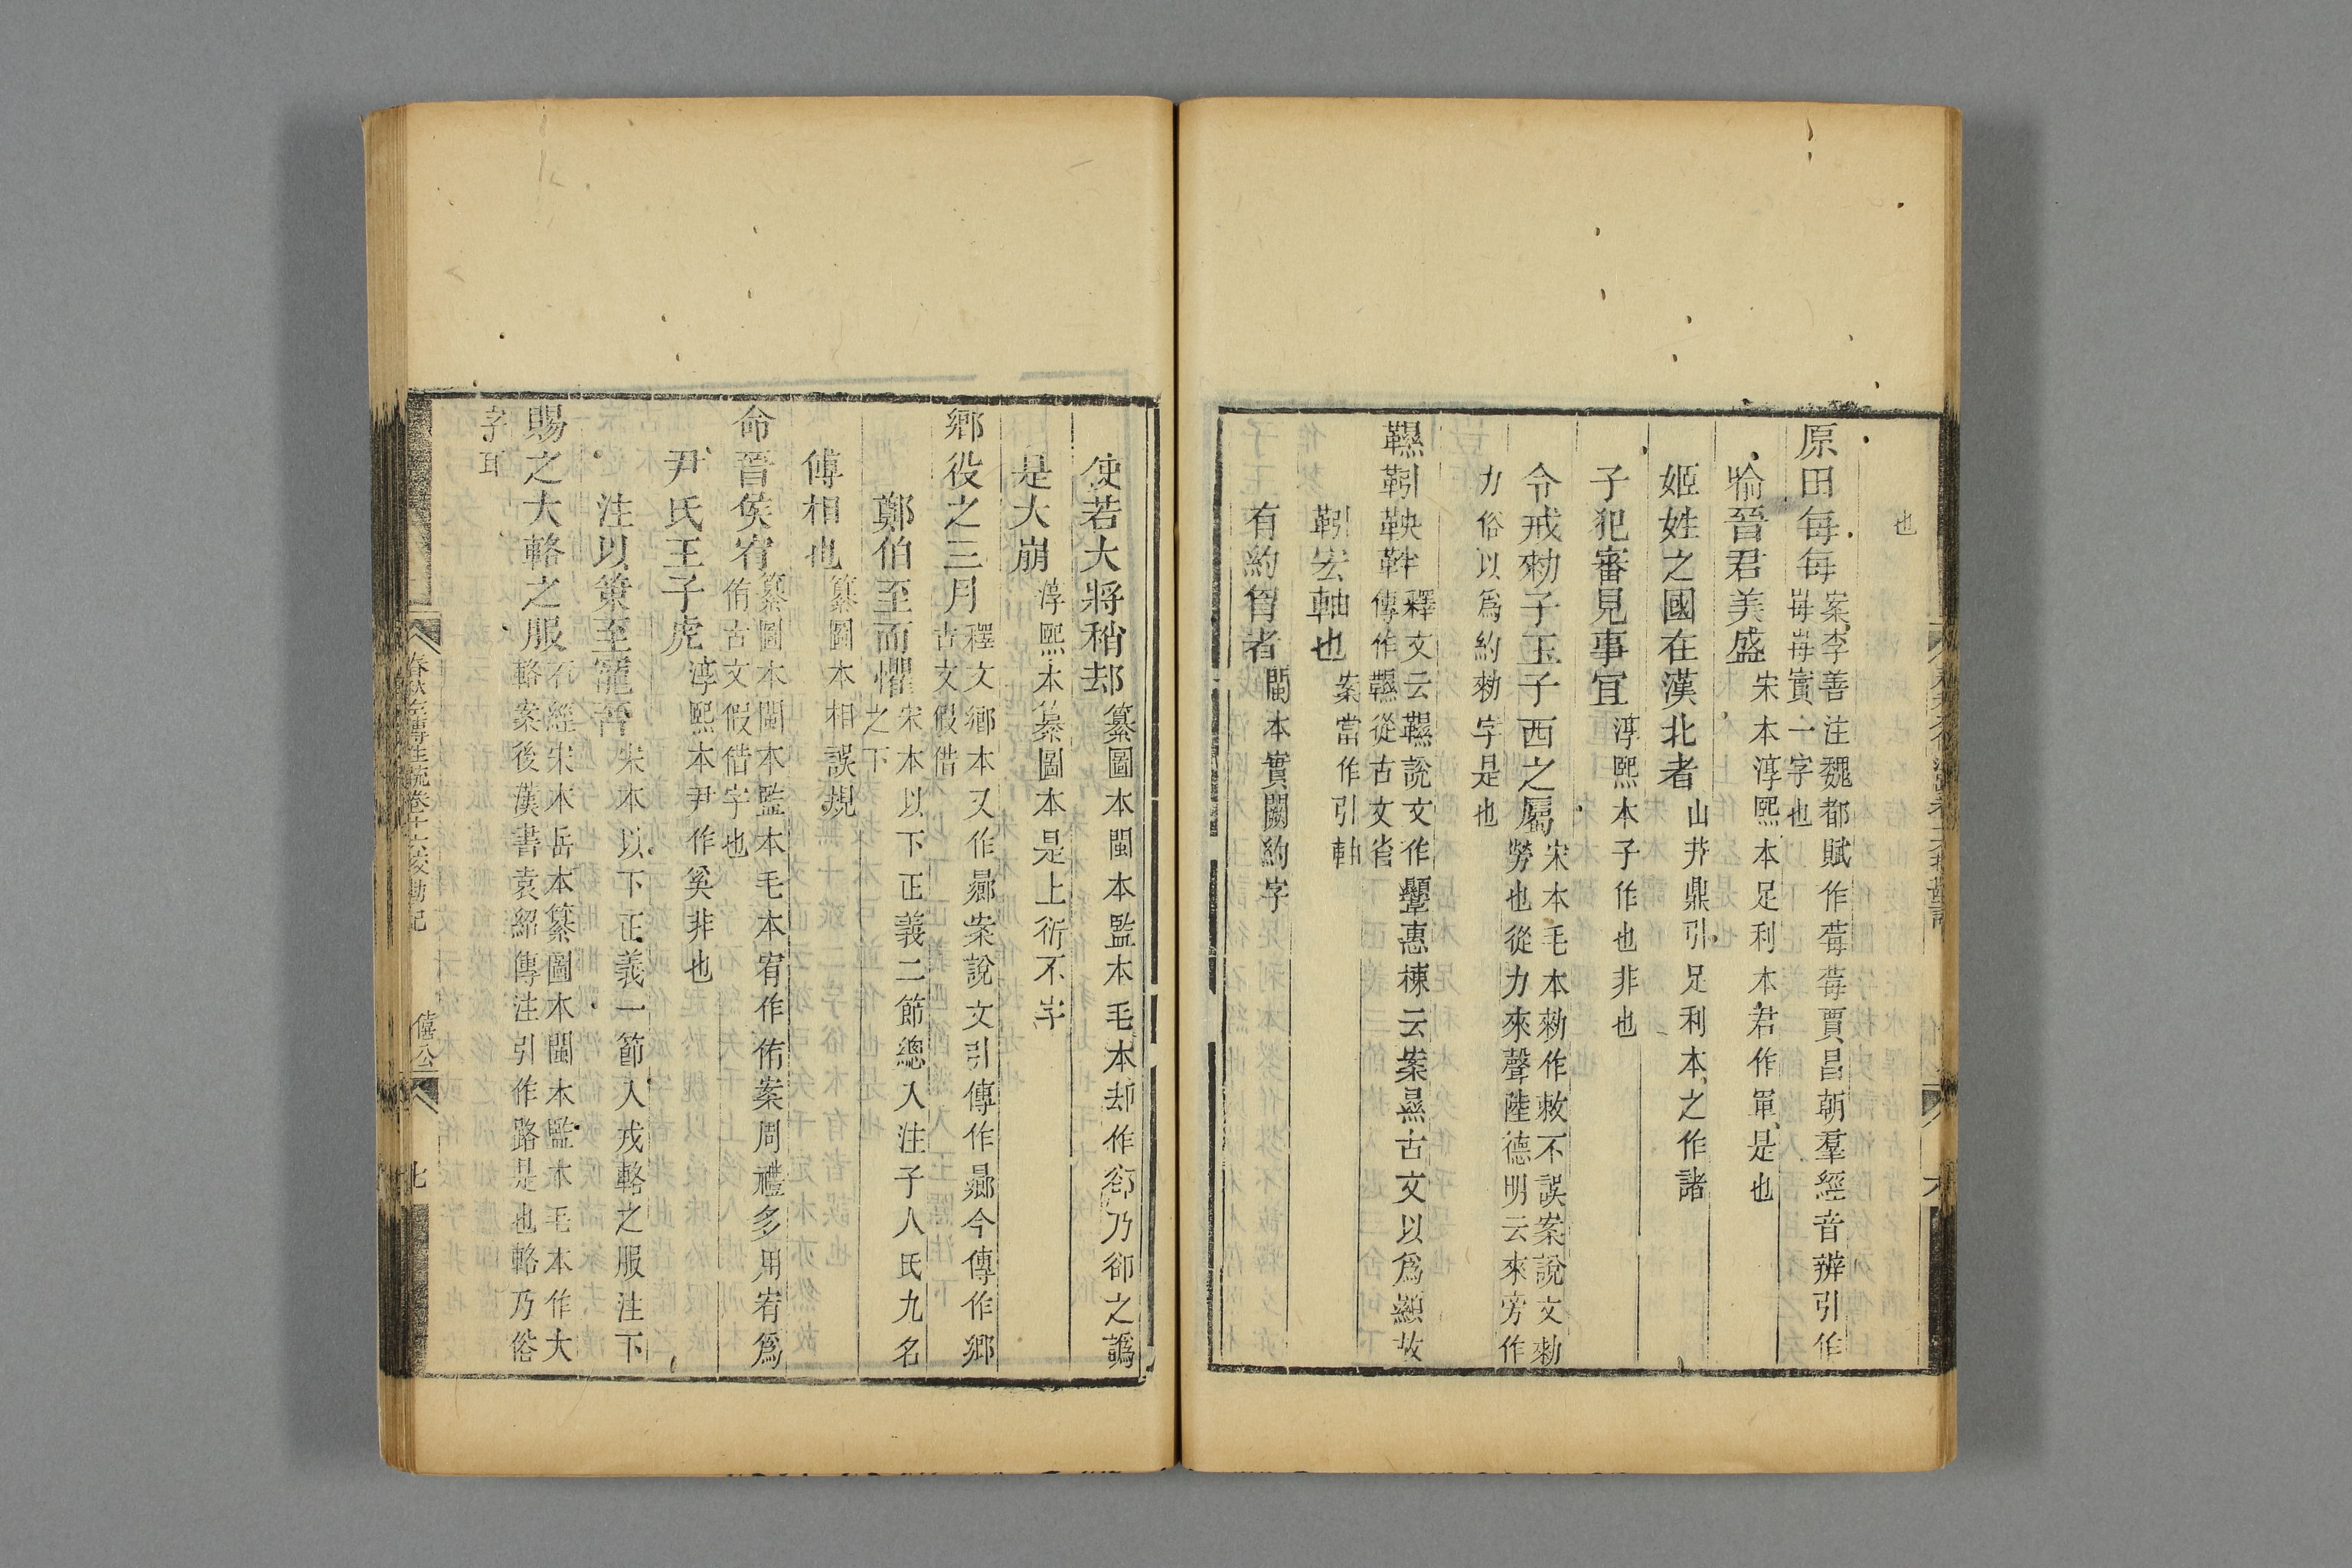 也
原田每每案李善注魏都賦作莓莓賈昌朝羣經音辨引作
莓莓實一字也
喻晉君美盛宋本淳熙本足利本君作軍是也
姬姓之國在漢北者山井鼎引足利本之作諸
子犯審見事宜淳熙本子作也非也
令戒勑子玉子西之屬宋本毛本勑作敕不誤案說文勑
勞也從力來聲陸德明云來旁作
力俗以爲約勑字是也
韅靷鞅靽釋文云韅說文作顯惠棟云案㬎古文以爲顯故
傳作韅從古文省
靷宏軸也案當作引軸
有約胥者閩本實闕約字
使若大將稍却纂圖本閩本監本毛本却作郤乃卻之譌
是大崩淳熙本纂圖本是上衍不字
鄉役之三月釋文鄉本又作曏案說文引傳作曏今傳作鄉
古文假借
鄭伯至而懼宋本以下正義二節總入注子人氏九名
之下
傅相也纂圖本相誤規
命晉侯宥纂圖本閩本監本毛本宥作侑案周禮多用宥爲
侑古文假借字也
尹氏王子虎淳熙本尹作奚非也
注以策至寵晉宋本以下正義一節入戎輅之服注下
賜之大輅之服石經宋本岳本纂圖本閩本監本毛本作大
輅案後漢書袁紹傳注引作路是也輅乃俗
字耳
春秋左傳注疏卷十六校勘記
僖公